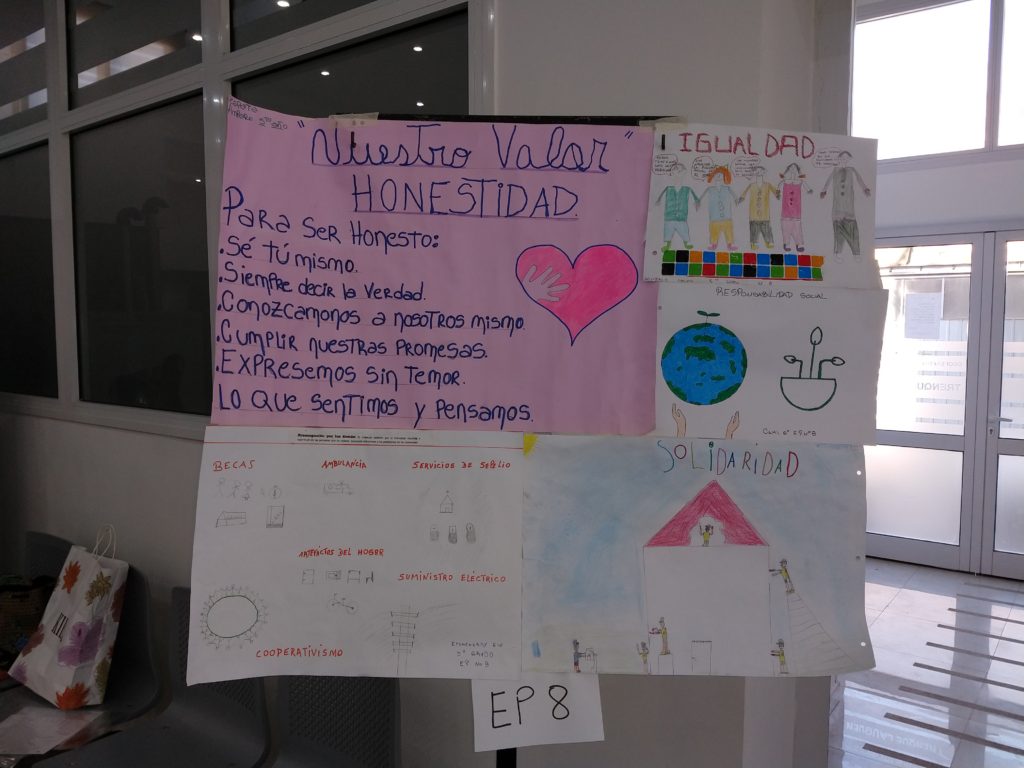 2do año
"Nuestro Valor"
HONESTIDAD.
Para ser Honesto:
.Sé tú mismo.
.Siempre decir la verdad.
.Conozcamonos a nosotros mismo.
.Cumplir nuestras promesas.
.Expresemos sin temor.
Lo que sentimos y pensamos.
IGUALDAD
RESPONSABILIDAD SOCIAL
BECAS
AMBULANCIA
SERVICIOS DE SEPELIO
ARTEFACTOS DEL HOGAR
SUMINISTRO ELÉCTRICO
COOPERATIVISMO
5º GRADO
EP Nº8
SOLIDARIDAD
EP 8